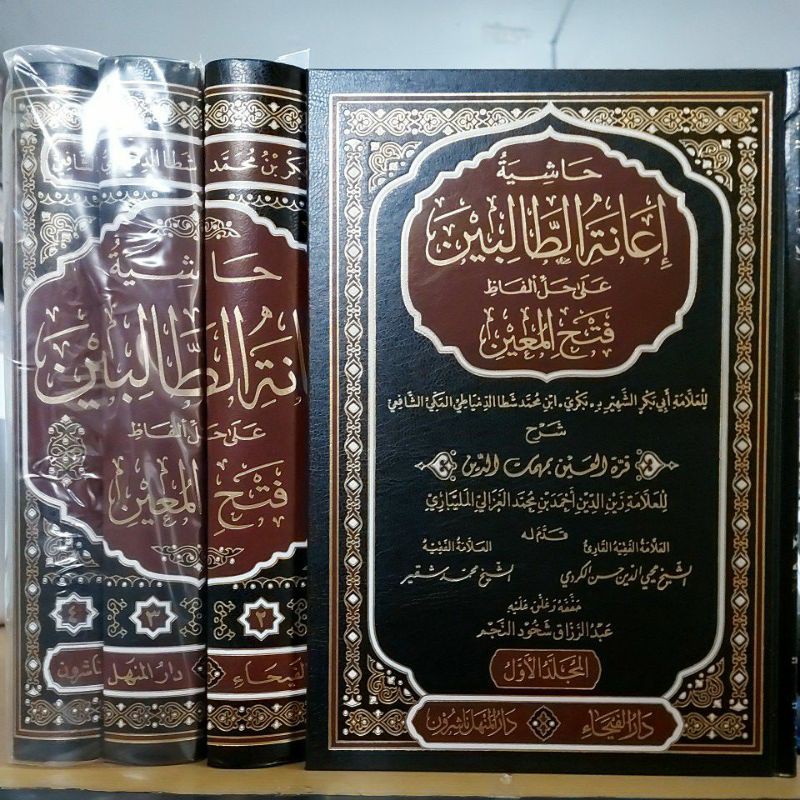 حَاشِيَةُ
إِعَانَةُ الطَّالِبِيْنَ
عَلَى حَلِّ أَلفَاظِ
فَتْحِ المُعِيْنِ
لِلعَلَّامَةِ أَبِي بَكْرِ الشَّهِيْرِ بِـ، بَكْرِي، ابْنِ مُحَمَّد شَطَا الدِّمْيَاطِيِّ المَكِّيِّ الشَّافِعِيِّ
شَرْحِ
قرة العين بمهمات الدين
لِلعَلَّامَةِ زَيْنِ الدِّيْنِ أَحْمَدَ بْنِ مُحَمَّد الغَزَالِيِّ المَلِيْبَارِيِّ
قَدَّمَ لَه
العَلَّامَةُ الفَقِيْهُ القَارِئُ
الشيخ محيي الدين حسن الكردي
العَلَّامَةُ الفَقِيْهُ
الشيخ محمد شقير
حَقَّقَهُ وَعَلَّقَ عَلَيْهِ
عَبْدُ الرَّزَّاقِ شَحُّود النَّجْم
المُجَلَّدُ الأَوَّلُ
دَارُ الفَيْحَاءِ
دَارُ المَنْهَلِ نَاشِرُون
كْرِ بْنُ مُحَمَّد شَطَا الدِّ الشَّافِعِي
حَاشِيَةُ
إعَانَةُ الطَّالِبِيْنَ
عَلَى حَلِّ أَلفَاظِ
فَتْحِ المُعِيْنِ
٤
٣
٢
نَاشِرُون
دَارُ المَنْهَل
الفَيْحَاءِ